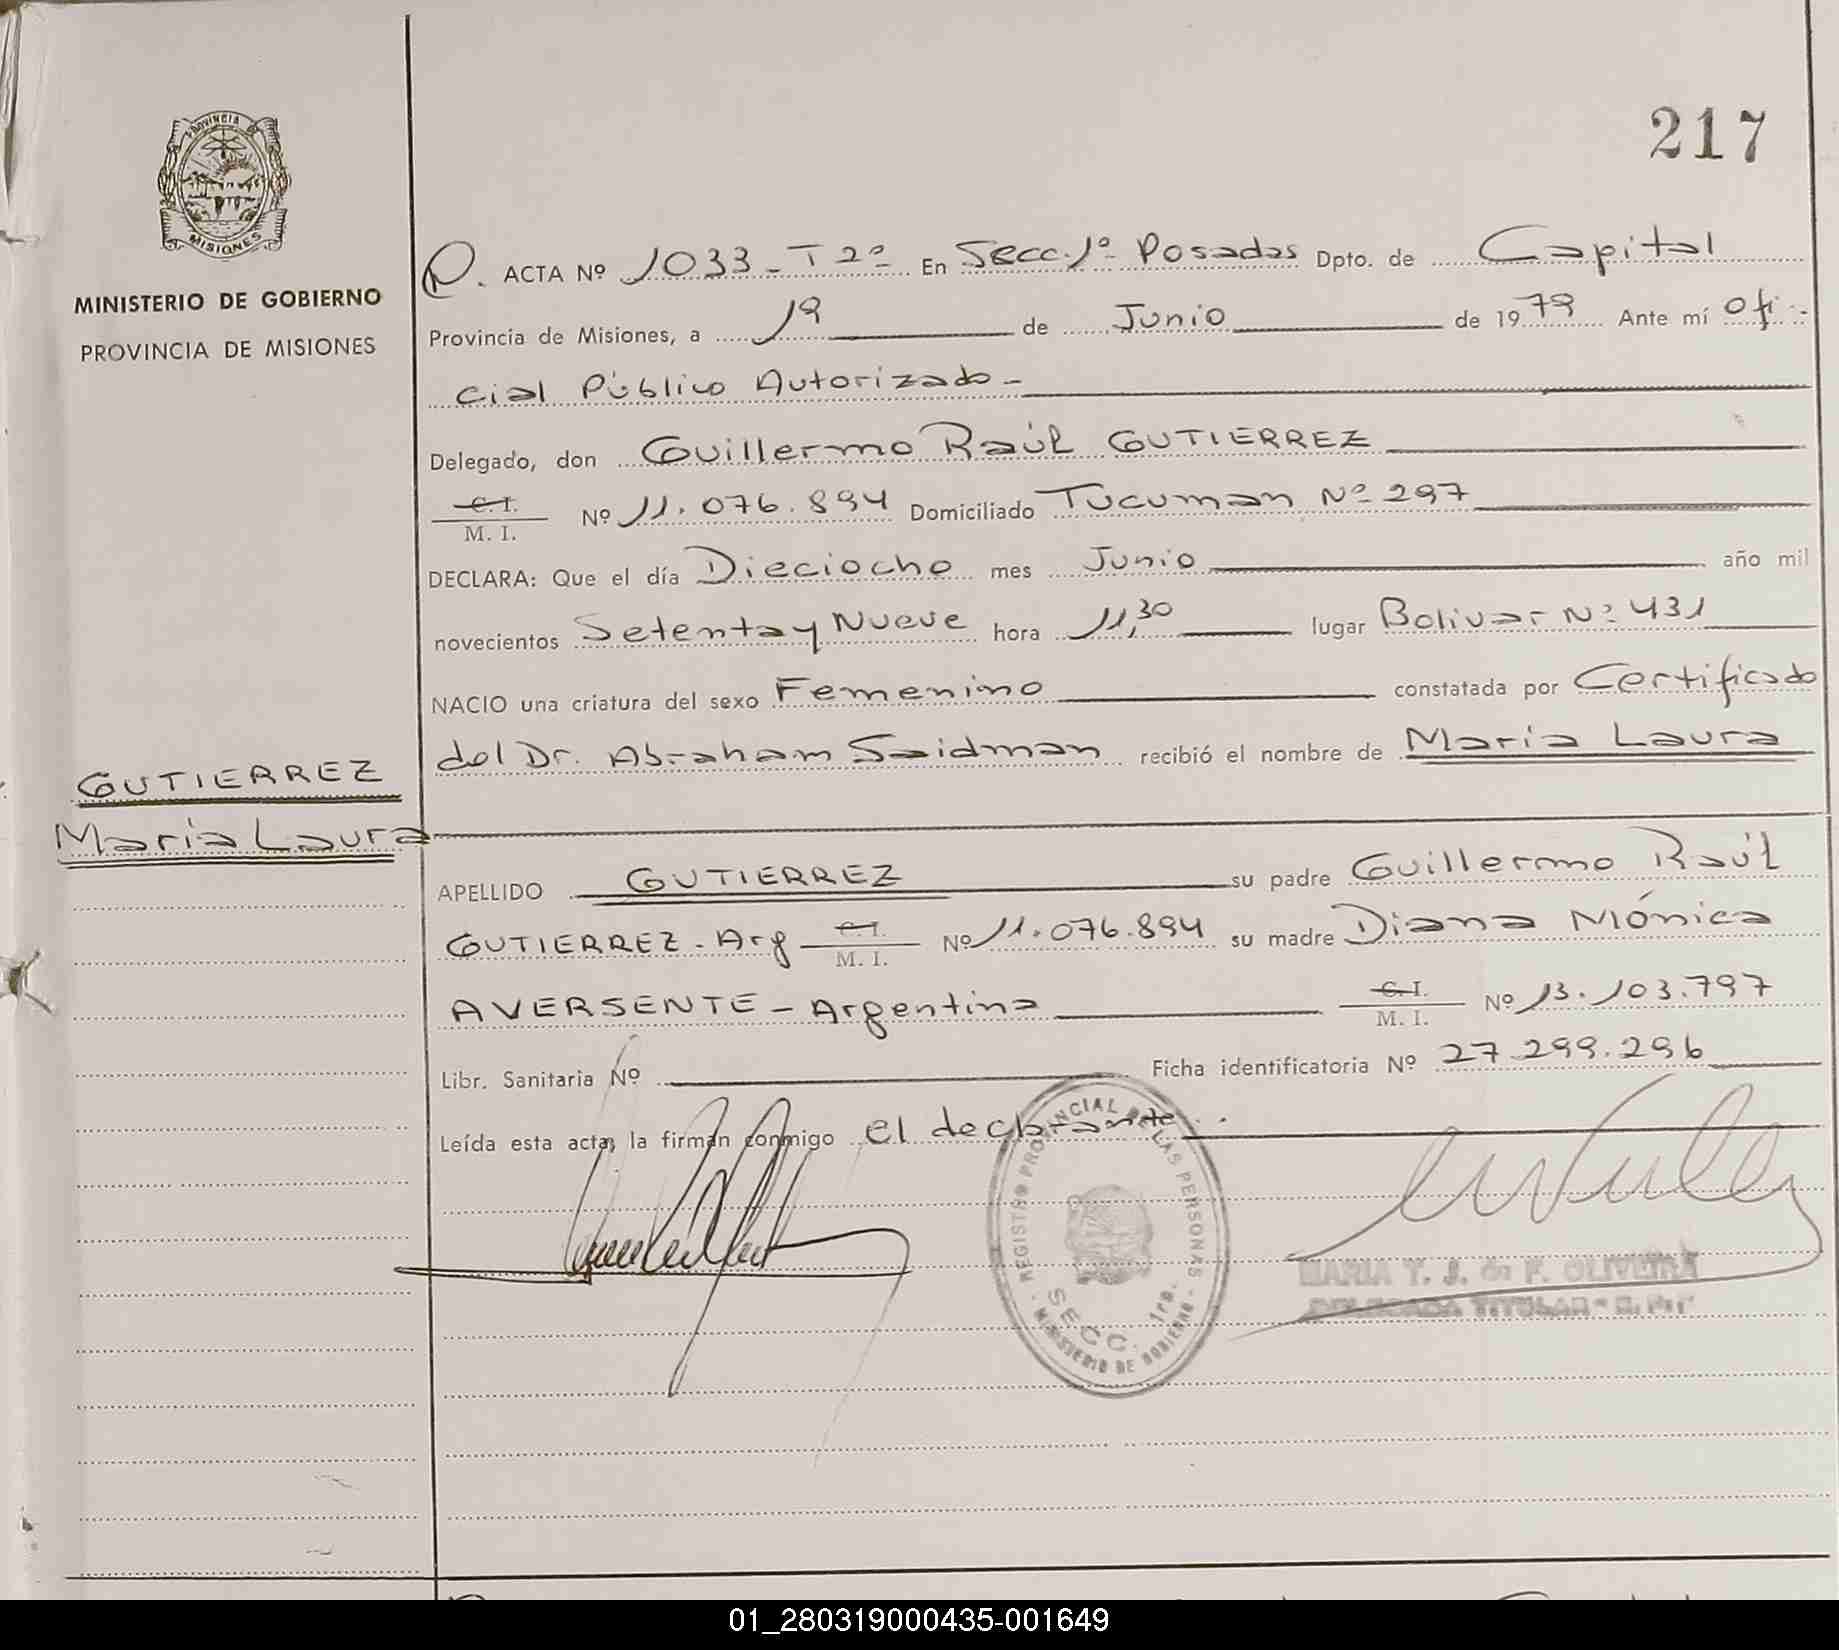 PROVINCIA DE
MISIONES
MINISTERIO DE GOBIERNO
PROVINCIA DE MISIONES
217
ACTA Nº 1033 - T 2º En Secc. 1º Posadas Dpto. de Capital
Provincia de Misiones, a 19 de Junio de 1979 Ante mí Ofi-
cial Público Autorizado -
Delegado, don Guillermo Raúl GUTIERREZ
C. I.
M. I. Nº 11.076.894 Domiciliado Tucuman Nº 297
DECLARA: Que el día Dieciocho mes Junio año mil
novecientos Setenta y Nueve hora 11,30 lugar Bolivar Nº 431
NACIO una criatura del sexo Femenino constatada por Certificado
del Dr. Abraham Saidman recibió el nombre de María Laura
GUTIERREZ
María Laura
APELLIDO GUTIERREZ su padre Guillermo Raúl
GUTIERREZ - Arg C. I.
M. I. Nº 11.076.894 su madre Diana Mónica
AVERSENTE - Argentina C. I.
M. I. Nº 13.103.797
Libr. Sanitaria Nº Ficha identificatoria Nº 27.299.296
Leída esta acta, la firman conmigo el declarante.
REGISTRO PROVINCIAL DE LAS PERSONAS
SECC. 1ra.
MINISTERIO DE GOBIERNO
MARIA T. J. de F. OLIVEIRA
DELEGADA TITULAR
01_280319000435-001649